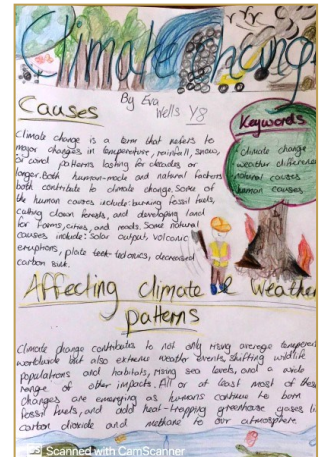 Climate Change
Causes
By Eva
Wells Y8
Keywords
climate change
weather difference
natural causes
human causes
Climate change is a term that refers to
major changes in temperature, rainfall, snow,
or wind patterns lasting for decades or
longer. Both human-made and natural factors
both contribute to climate change. Some of
the human causes include: burning fossil fuels,
cutting down forests, and developing land
for farms, cities, and roads. Some natural
causes include: Solar output, volcanic
eruptions, plate tectonics,
carbon
Affecting climate & weather
patterns
Climate change contributes to not only rising average temperat
worldwide but also extreme weather events, shifting wildlife
populations and habitats, rising sea levels, and a wide
range of other impacts. All or at least most of these
changes are emerging as humans continue to burn
fossil fuels, and add heat-trapping greenhouse gases li
carbon dioxide and methane to our atmosphere
Scanned with CamScanner